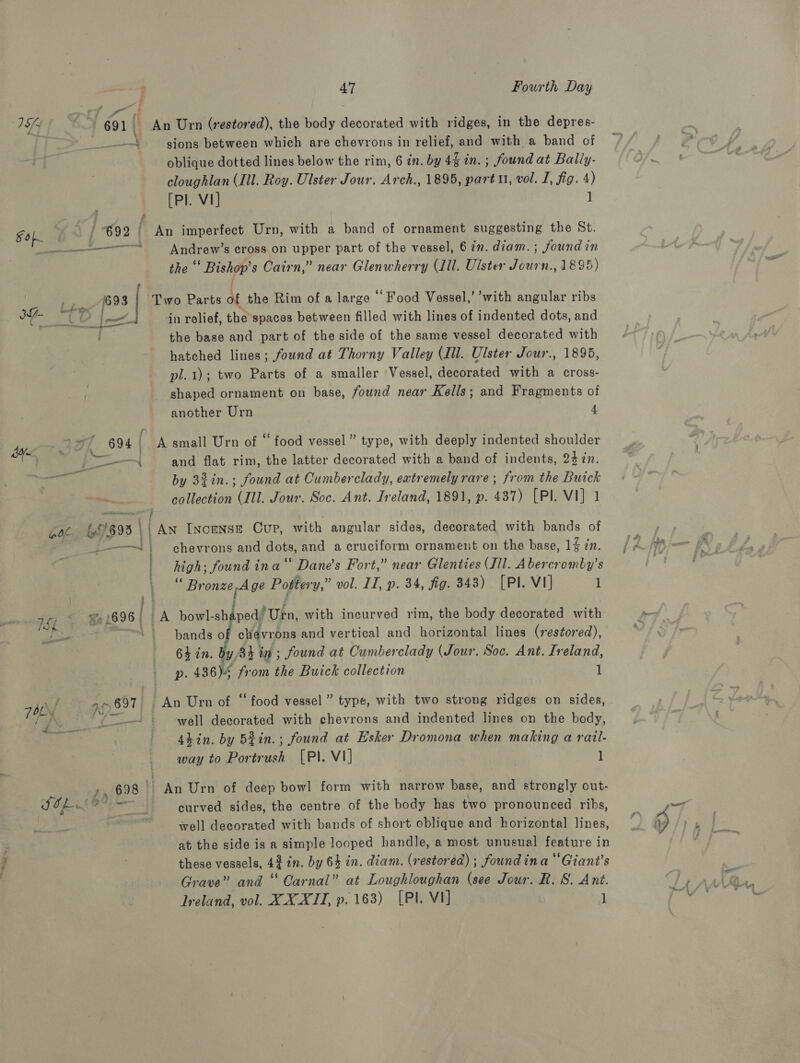 47 Fourth Day
691 An Urn (restored), the body decorated with ridges, in the depres-
sions between which are chevrons in relief, and with a band of
oblique dotted lines below the rim, 6 in. by 4¾ in.; found at Bally-
cloughlan (Ill. Roy. Ulster Jour. Arch., 1895, part 11, vol. I, fig. 4)
[Pl. VI] 1
692 An imperfect Urn, with a band of ornament suggesting the St.
Andrew's cross on upper part of the vessel, 6 in. diam.; found in
the “Bishop's Cairn,” near Glenwherry (Ill. Ulster Journ., 1895)
693 Two Parts of the Rim of a large “Food Vessel,’’ with angular ribs
in relief, the spaces between filled with lines of indented dots, and
the base and part of the side of the same vessel decorated with
hatched lines; found at Thorny Valley (Ill. Ulster Jour., 1895,
pl. 1); two Parts of a smaller Vessel, decorated with a cross-
shaped ornament on base, found near Kells; and Fragments of
another Urn 4
694 A small Urn of “food vessel” type, with deeply indented shoulder
and flat rim, the latter decorated with a band of indents, 2½ in.
by 3¾ in.; found at Cumberclady, extremely rare; from the Buick
collection (Ill. Jour. Soc. Ant. Ireland, 1891, p. 437) [Pl. VI] 1
695 An Incense Cup, with angular sides, decorated with bands of
chevrons and dots, and a cruciform ornament on the base, 1¾ in.
high; found in a “Dane's Fort,” near Glenties (Ill. Abercromby's
“Bronze Age Pottery,” vol. II, p. 34, fig. 343) [Pl. VI] 1
696 A bowl-shaped Urn, with incurved rim, the body decorated with
bands of chevrons and vertical and horizontal lines (restored),
6½ in. by 3½ in; found at Cumberclady (Jour. Soc. Ant. Ireland,
p. 436); from the Buick collection 1
697 An Urn of “food vessel” type, with two strong ridges on sides,
well decorated with chevrons and indented lines on the body,
4½ in. by 5¾ in.; found at Esker Dromona when making a rail-
way to Portrush [Pl. VI] 1
698 An Urn of deep bowl form with narrow base, and strongly out-
curved sides, the centre of the body has two pronounced ribs,
well decorated with bands of short oblique and horizontal lines,
at the side is a simple looped handle, a most unusual feature in
these vessels, 4¾ in. by 6½ in. diam. (restored); found in a “Giant's
Grave” and “Carnal” at Loughloughan (see Jour. R. S. Ant.
Ireland, vol. XXXII, p. 163) [Pl. VI] 1